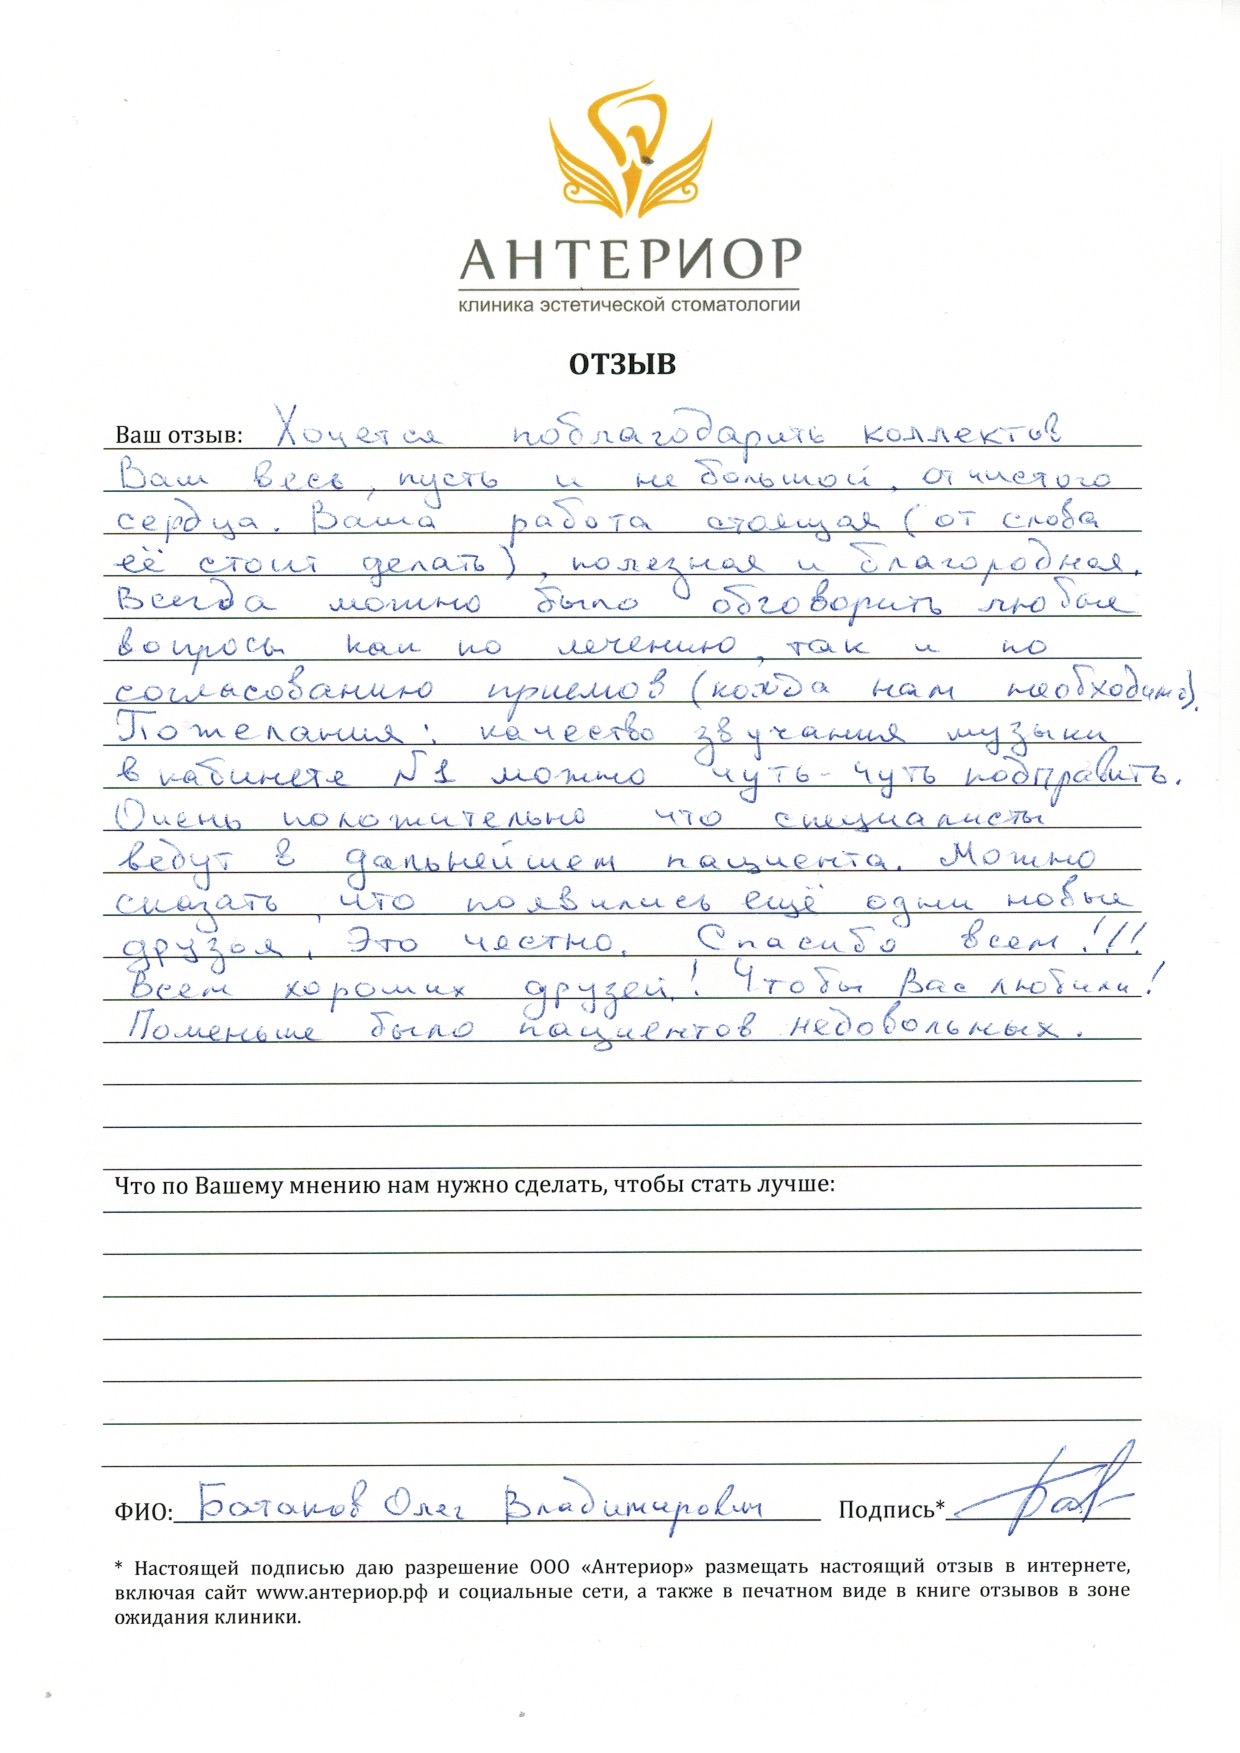 АНТЕРИОР
клиника эстетической стоматологии
ОТЗЫВ
Ваш отзыв: Хочется поблагодарить коллектив
Ваш весь, пусть и не большой, от чистого
сердца. Ваша работа стоящая (от слова
её стоит делать), полезная и благородная.
Всегда можно было обговорить любые
вопросы как по лечению, так и по
согласованию приемов (когда нам необходимо).
Пожелания: качество звучания музыки
в кабинете №1 можно чуть-чуть подправить.
Очень положительно что специалисты
ведут в дальнейшем пациента. Можно
сказать, что появились ещё одни новые
друзья, Это честно. Спасибо всем!!!
Всем хороших друзей! Чтобы Вас любили!
Поменьше было пациентов недовольных.
Что по Вашему мнению нам нужно сделать, чтобы стать лучше:
ФИО: Батаков Олег Владимирович Подпись*
* Настоящей подписью даю разрешение ООО «Антериор» размещать настоящий отзыв в интернете,
включая сайт www.антериор.рф и социальные сети, а также в печатном виде в книге отзывов в зоне
ожидания клиники.